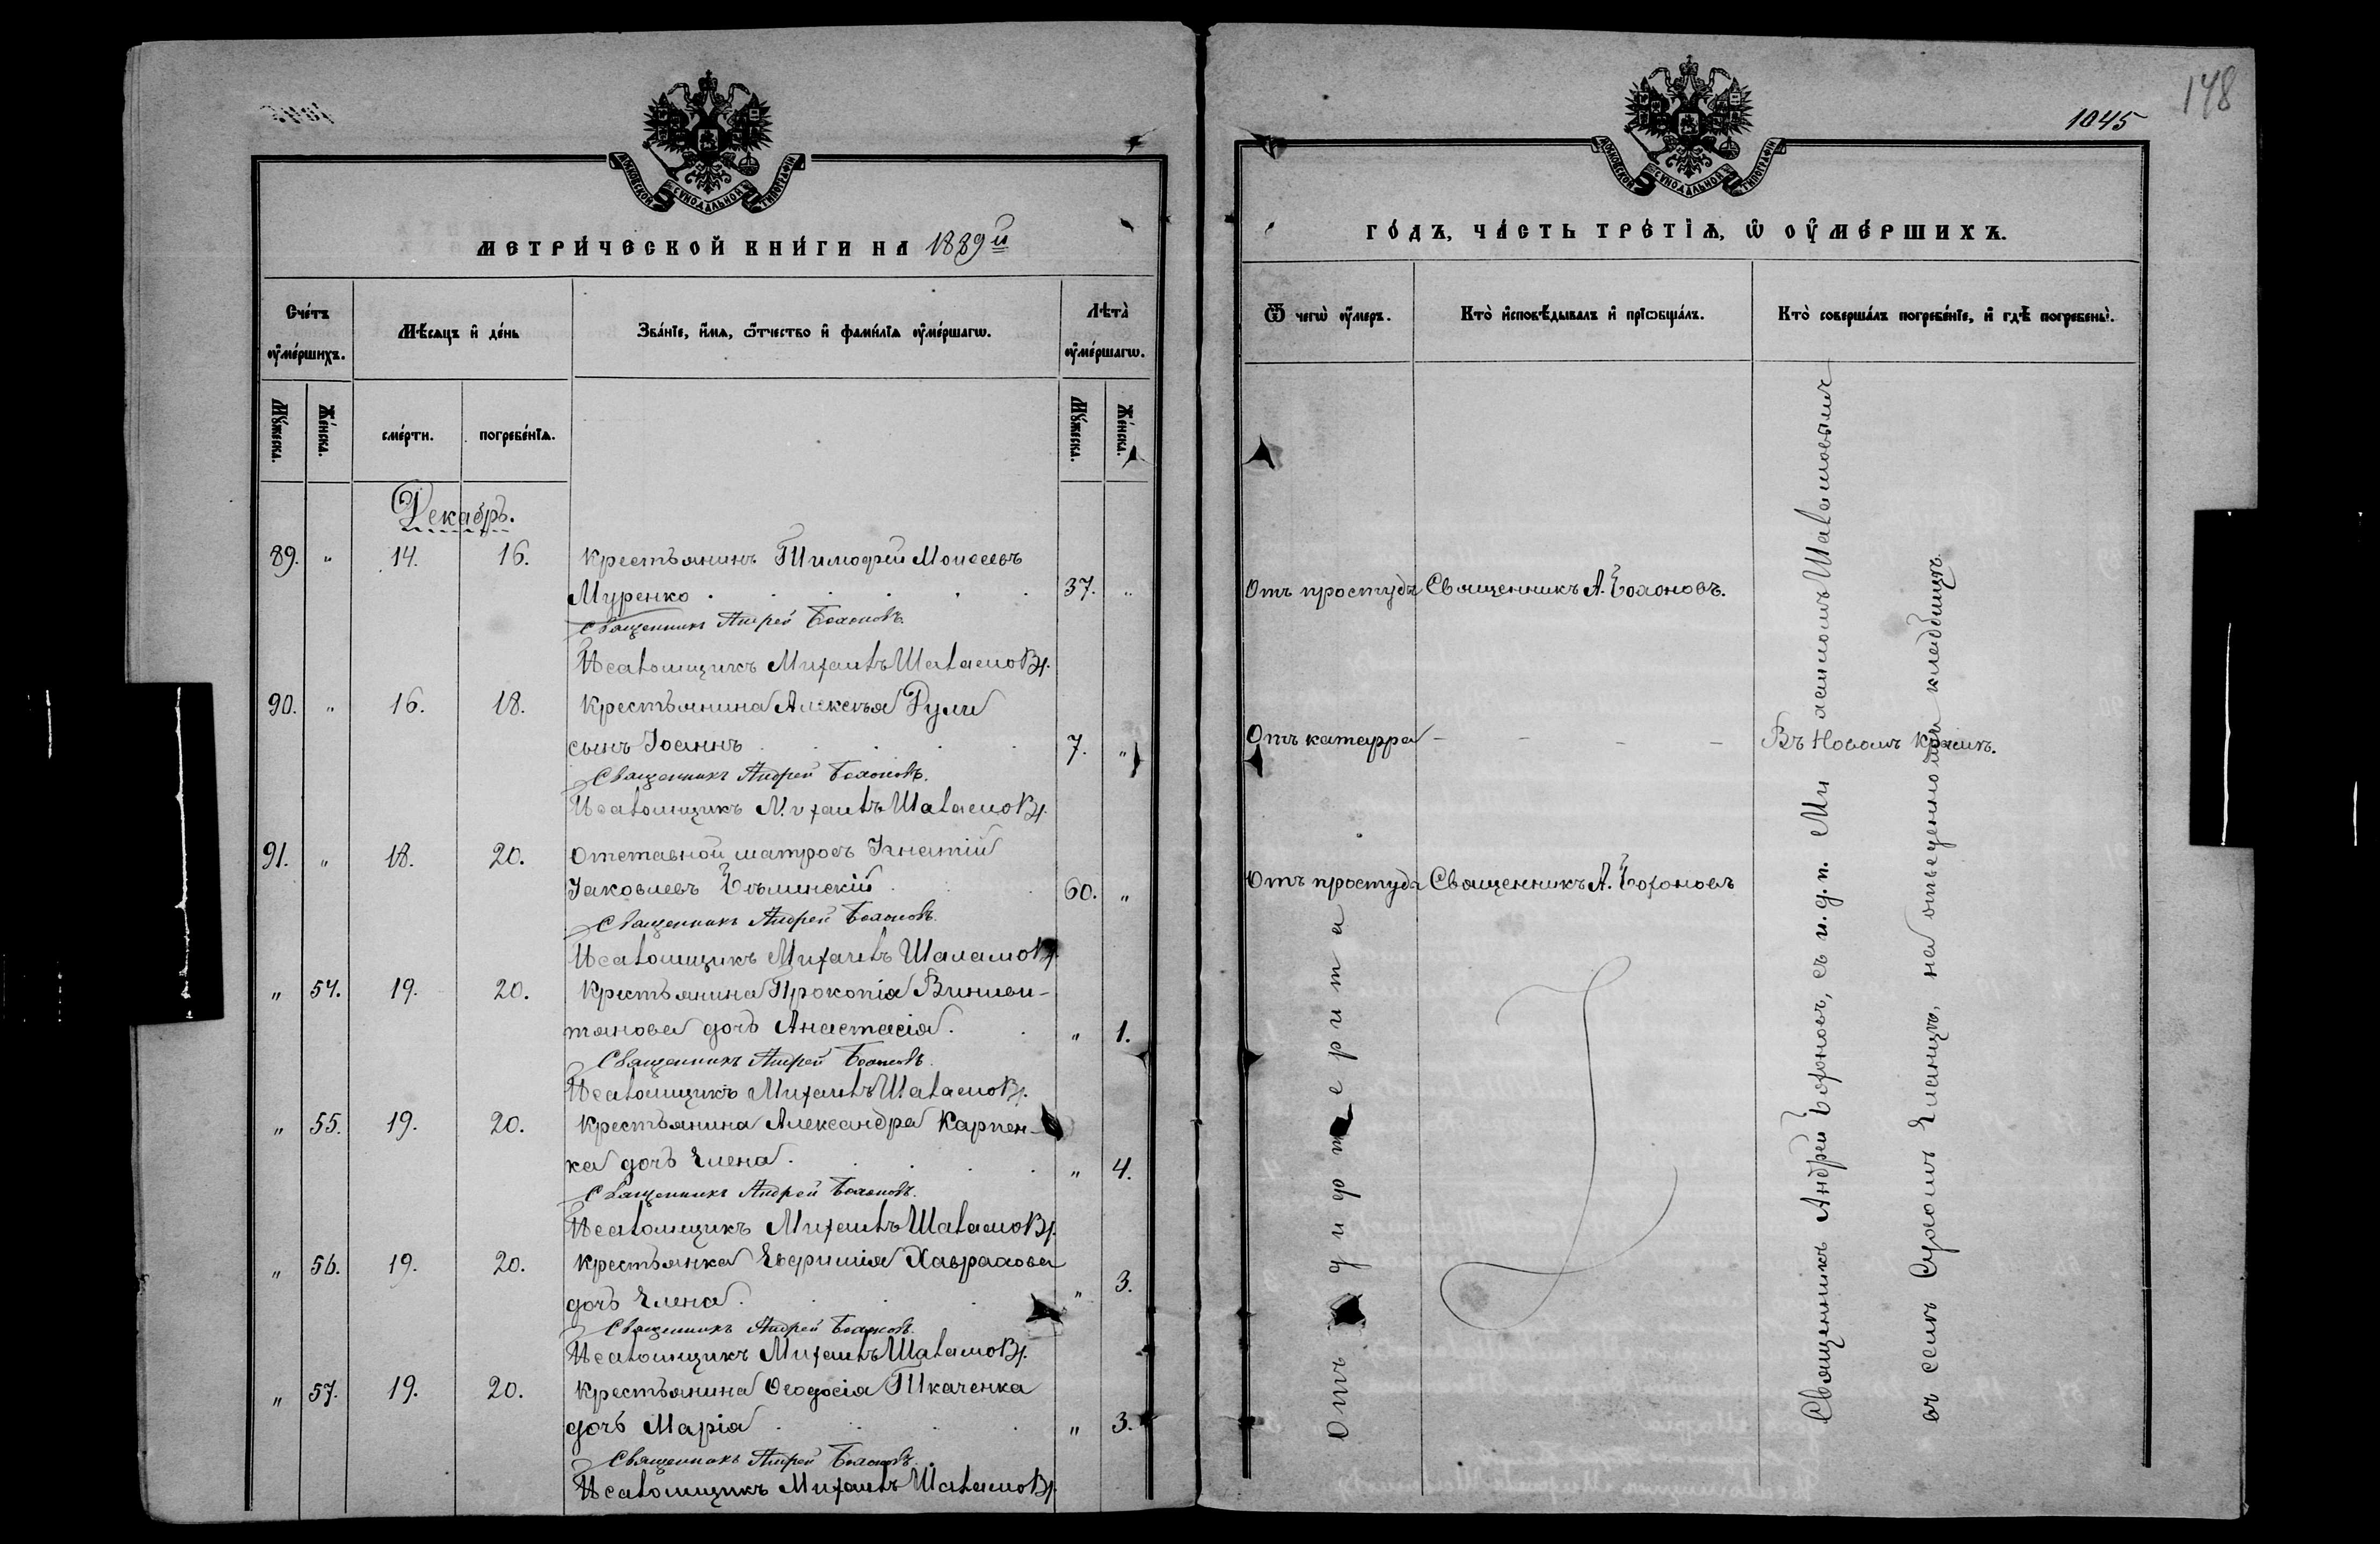 МОСКОВСКОЙ СѴНОДАЛЬНОЙ ТИПОГРАФІИ
МЕТРИ́ЧЕСКОЙ КНИ́ГИ НА 1889й
Сче́тъ ᲂу҆ме́ршихъ.
Мѣ́сяцъ и҆ де́нь
Зва́нїе, и҆́мѧ, ѻ҆́тчество и҆ фами́лїѧ ᲂу҆ме́ршагѡ.
Лѣта̀ ᲂу҆ме́ршагѡ.
Мꙋ́жеска.
Же́нска.
сме́рти.
погребе́нїѧ.
Мꙋ́жеска.
Же́нска.
Декабрь.
89. " 14. 16. Крестьянинъ Тимофей Моисеевъ
Муренко . 37. "
Священникъ Андрей Бохоновъ.
Псаломщикъ Михаилъ Шаламовъ.
90. " 16. 18. Крестьянина Алексѣя Рули
сынъ Іоаннъ . 7. "
Священникъ Андрей Бохоновъ.
Псаломщикъ Михаилъ Шаламовъ.
91. " 18. 20. Отставной матросъ Игнатій
Іаковлевъ 60. "
Священникъ Андрей Бохоновъ.
Псаломщикъ Михаилъ Шаламовъ.
" 54. 19. 20. Крестьянина Прокопія
дочь Анастасія. " 1.
Священникъ Андрей Бохоновъ.
Псаломщикъ Михаилъ Шаламовъ.
" 55. 19. 20. Крестьянина Александра Карпен-
ка дочь Елена. " 4.
Священникъ Андрей Бохоновъ.
Псаломщикъ Михаилъ Шаламовъ.
" 56. 19. 20. Крестьянка Евфимія Хаврахова
дочь Елена. " 3.
Священникъ Андрей Бохоновъ.
Псаломщикъ Михаилъ Шаламовъ.
" 57. 19. 20. Крестьянина Ѳеодосія Ткаченка
дочь Марія . " 3.
Священникъ Андрей Бохоновъ.
Псаломщикъ Михаилъ Шаламовъ.
148
1045
МОСКОВСКОЙ СѴНОДАЛЬНОЙ ТИПОГРАФІИ
ГО́ДЪ, ЧА́СТЬ ТРЕ́ТЇѦ, Ѡ҆ ОУ҆МЕ́РШИХЪ.
Ѿ чегѡ̀ ᲂу҆́меръ.
Кто̀ и҆сповѣ́дывалъ и҆ прїѡбща́лъ.
Кто̀ соверша́лъ погребе́нїе, и҆ гдѣ̀ погребены̀.
Отъ простуды Священникъ А. Бохоновъ.
Отъ катарра – – – – Въ Новомъ
Отъ простуды Священникъ А. Бохоновъ
Отъ дифтерита
Священникъ Андрей Бохоновъ, съ и. д. п. Михаиломъ Шаламовымъ
въ селѣ Сухомъ Еланцѣ, на отведенномъ кладбищѣ.